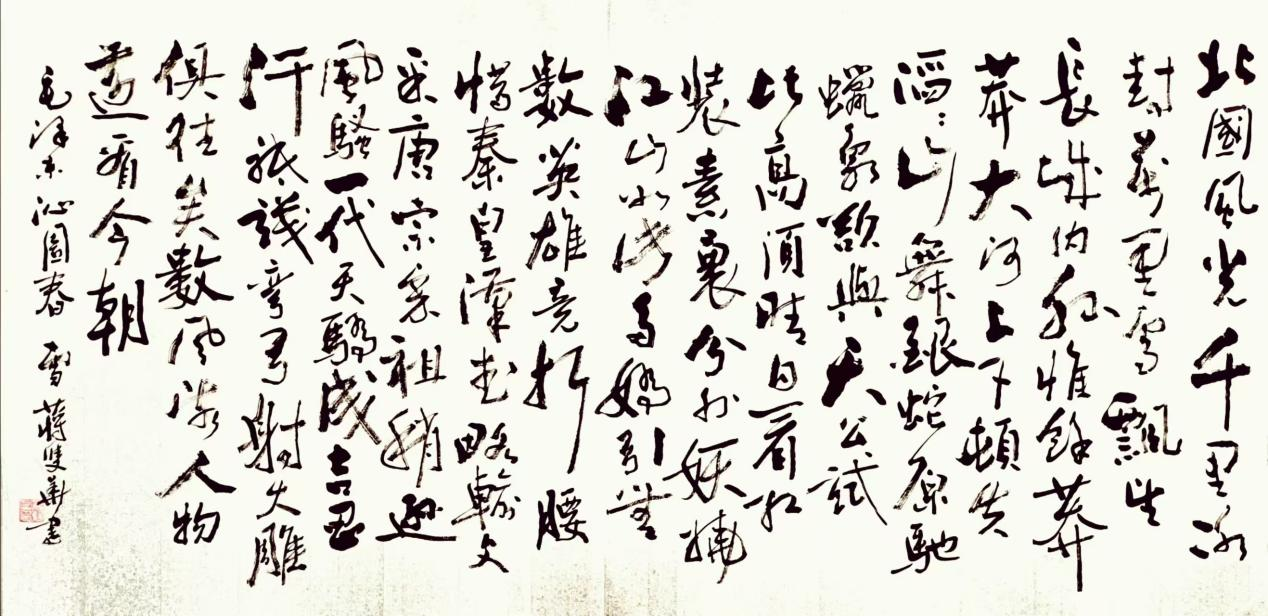 北國風光千里冰
封萬里雪飄望
長城內外惟餘莽
莽大河上下頓失
滔々山舞銀蛇原馳
蠟象欲與天公試
比高須晴日看紅
裝素裹分外妖嬈
江山如此多嬌引無
數英雄竞折腰
惜秦皇漢武略輸文
采唐宗宋祖稍遜
風騷一代天驕成吉思
汗祗識彎弓射大雕
俱往矣數風流人物
還看今朝
毛澤東沁園春 雪 蔣雙華書